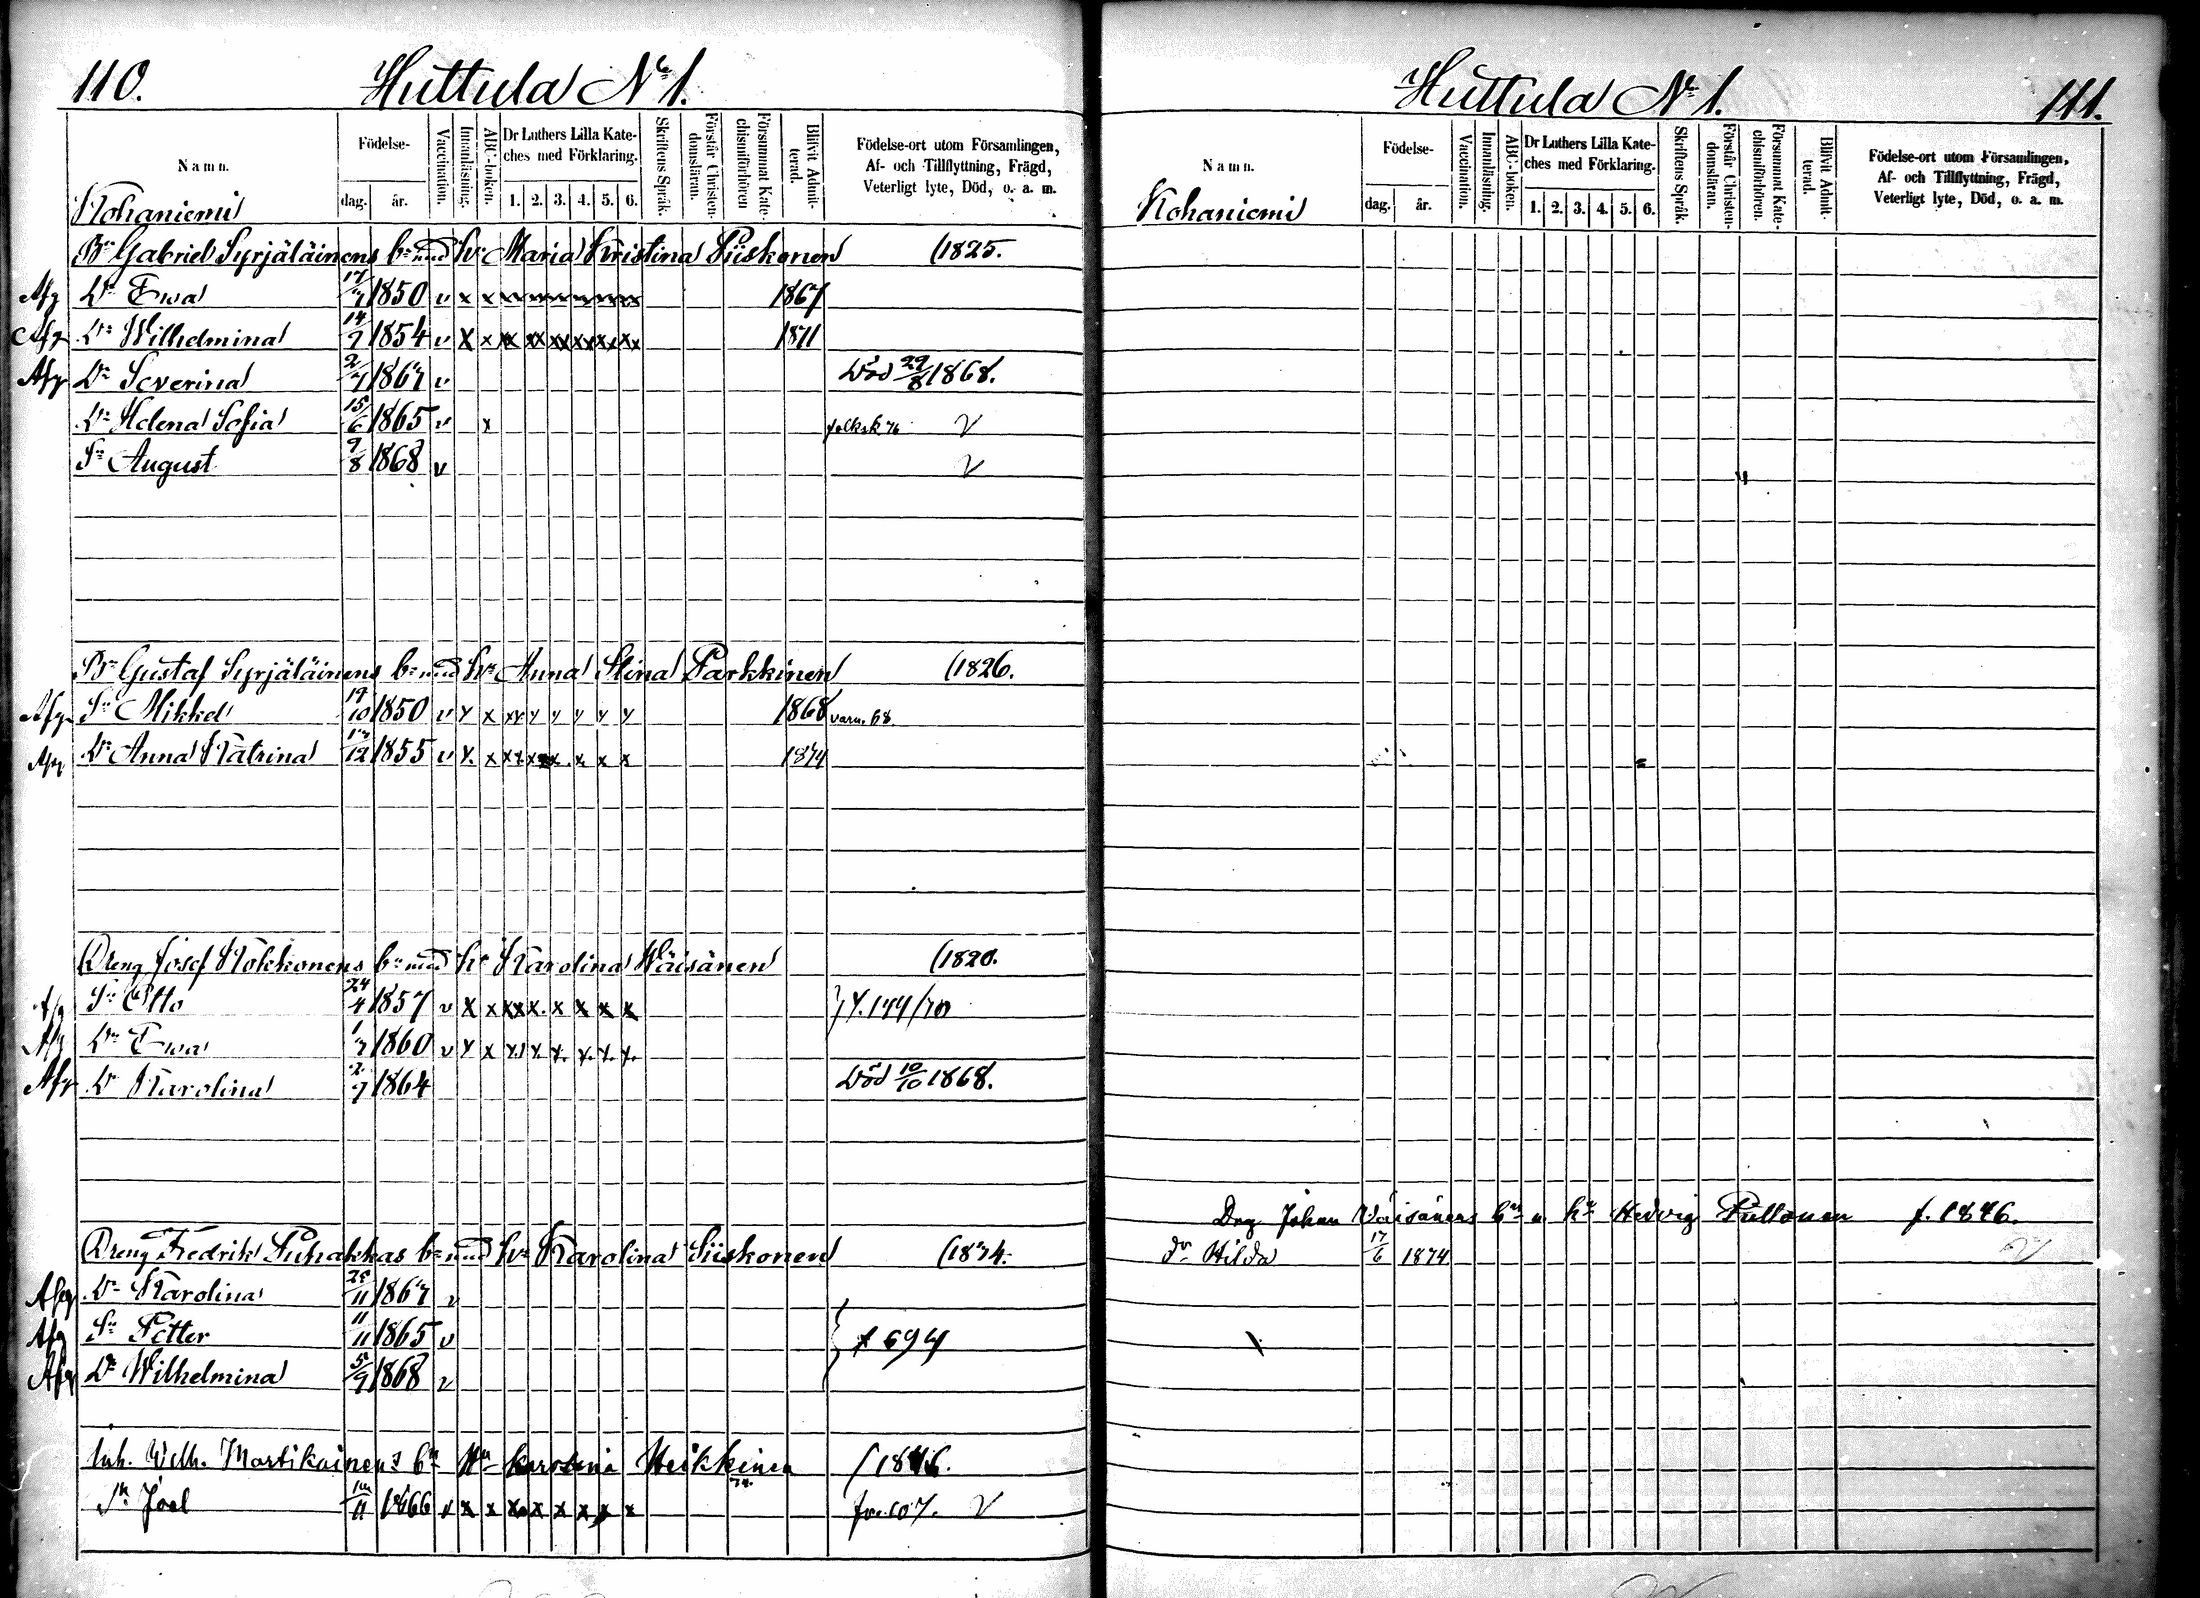 110. Huttula No 1.
Namn. Födelse- dag. år. Vaccination. Innanläsning. ABC-boken. Dr Luthers Lilla Kateches med Förklaring. 1. 2. 3. 4. 5. 6. Skriftens Språk. Förstår Christendomsläran. Försummat Katechismiförhören Blifvit Admitterad. Födelse-ort utom Församlingen, Af- och Tillflyttning, Frägd, Veterligt lyte, Död, o. a. m.
Kohaniemi
Bn Gabriel Syrjäläinens bn med hu Maria Kristina Piiskonen (1825.
Afg Dr Ewa 17/7 1850 v x x 1867
Afg Dr Wilhelmina 14/7 1854 v x x xx xx xx xx xx xx 1871
Afg Dr Severina 2/7 1867 v Död 29/8 1868.
Dr Helena Sofia 15/6 1865 v x folksk. 76 V
Sn August 9/8 1868 v V
Bn Gustaf Syrjäläinens bn med hu Anna Stina Parkkinen (1826.
Afg Sn Mikkel 19/10 1850 v x x xx x x x x x 1868 varn. 68.
Afg Dr Anna Katrina 12 1855 v x. x xx x x x x x 1874
Dreng Josef Kokkonens bn med hu Karolina Wäisänen (1820.
Afg Sn Otto 24/4 1857 v x x xx x. x x x x } f. 144/70
Afg Dr Ewa 1/7 1860 v x x x. x. x. x. x. x.
Afg Dr Karolina 2/7 1864 Död 10/10 1868.
Dreng Fredrik Puhakkas bn med hu Karolina Siiskonen (1834.
Afg Dr Karolina 11 1867 v
Afg Sn Petter 11/11 1865 v } f 694
Afg Dr Wilhelmina 5/9 1868 v
Inh. Wilh. Martikainens bn Hu Karolina Heikkinen (1846.
Sn Joel 11 1866 v x x x x x x x x fr. 107. V
Huttula No 1. 111.
Namn. Födelse- dag. år. Vaccination. Innanläsning. ABC-boken. Dr Luthers Lilla Kateches med Förklaring. 1. 2. 3. 4. 5. 6. Skriftens Språk. Förstår Christendomsläran. Försummat Katechismiförhören. Blifvit Admitterad. Födelse-ort utom Församlingen, Af- och Tillflyttning, Frägd, Veterligt lyte, Död, o. a. m.
Kohaniemi
Dng Johan Väisänens bn o hu Hedvig Pulkonen f. 1846.
Dr Hilda 17/6 1874 V